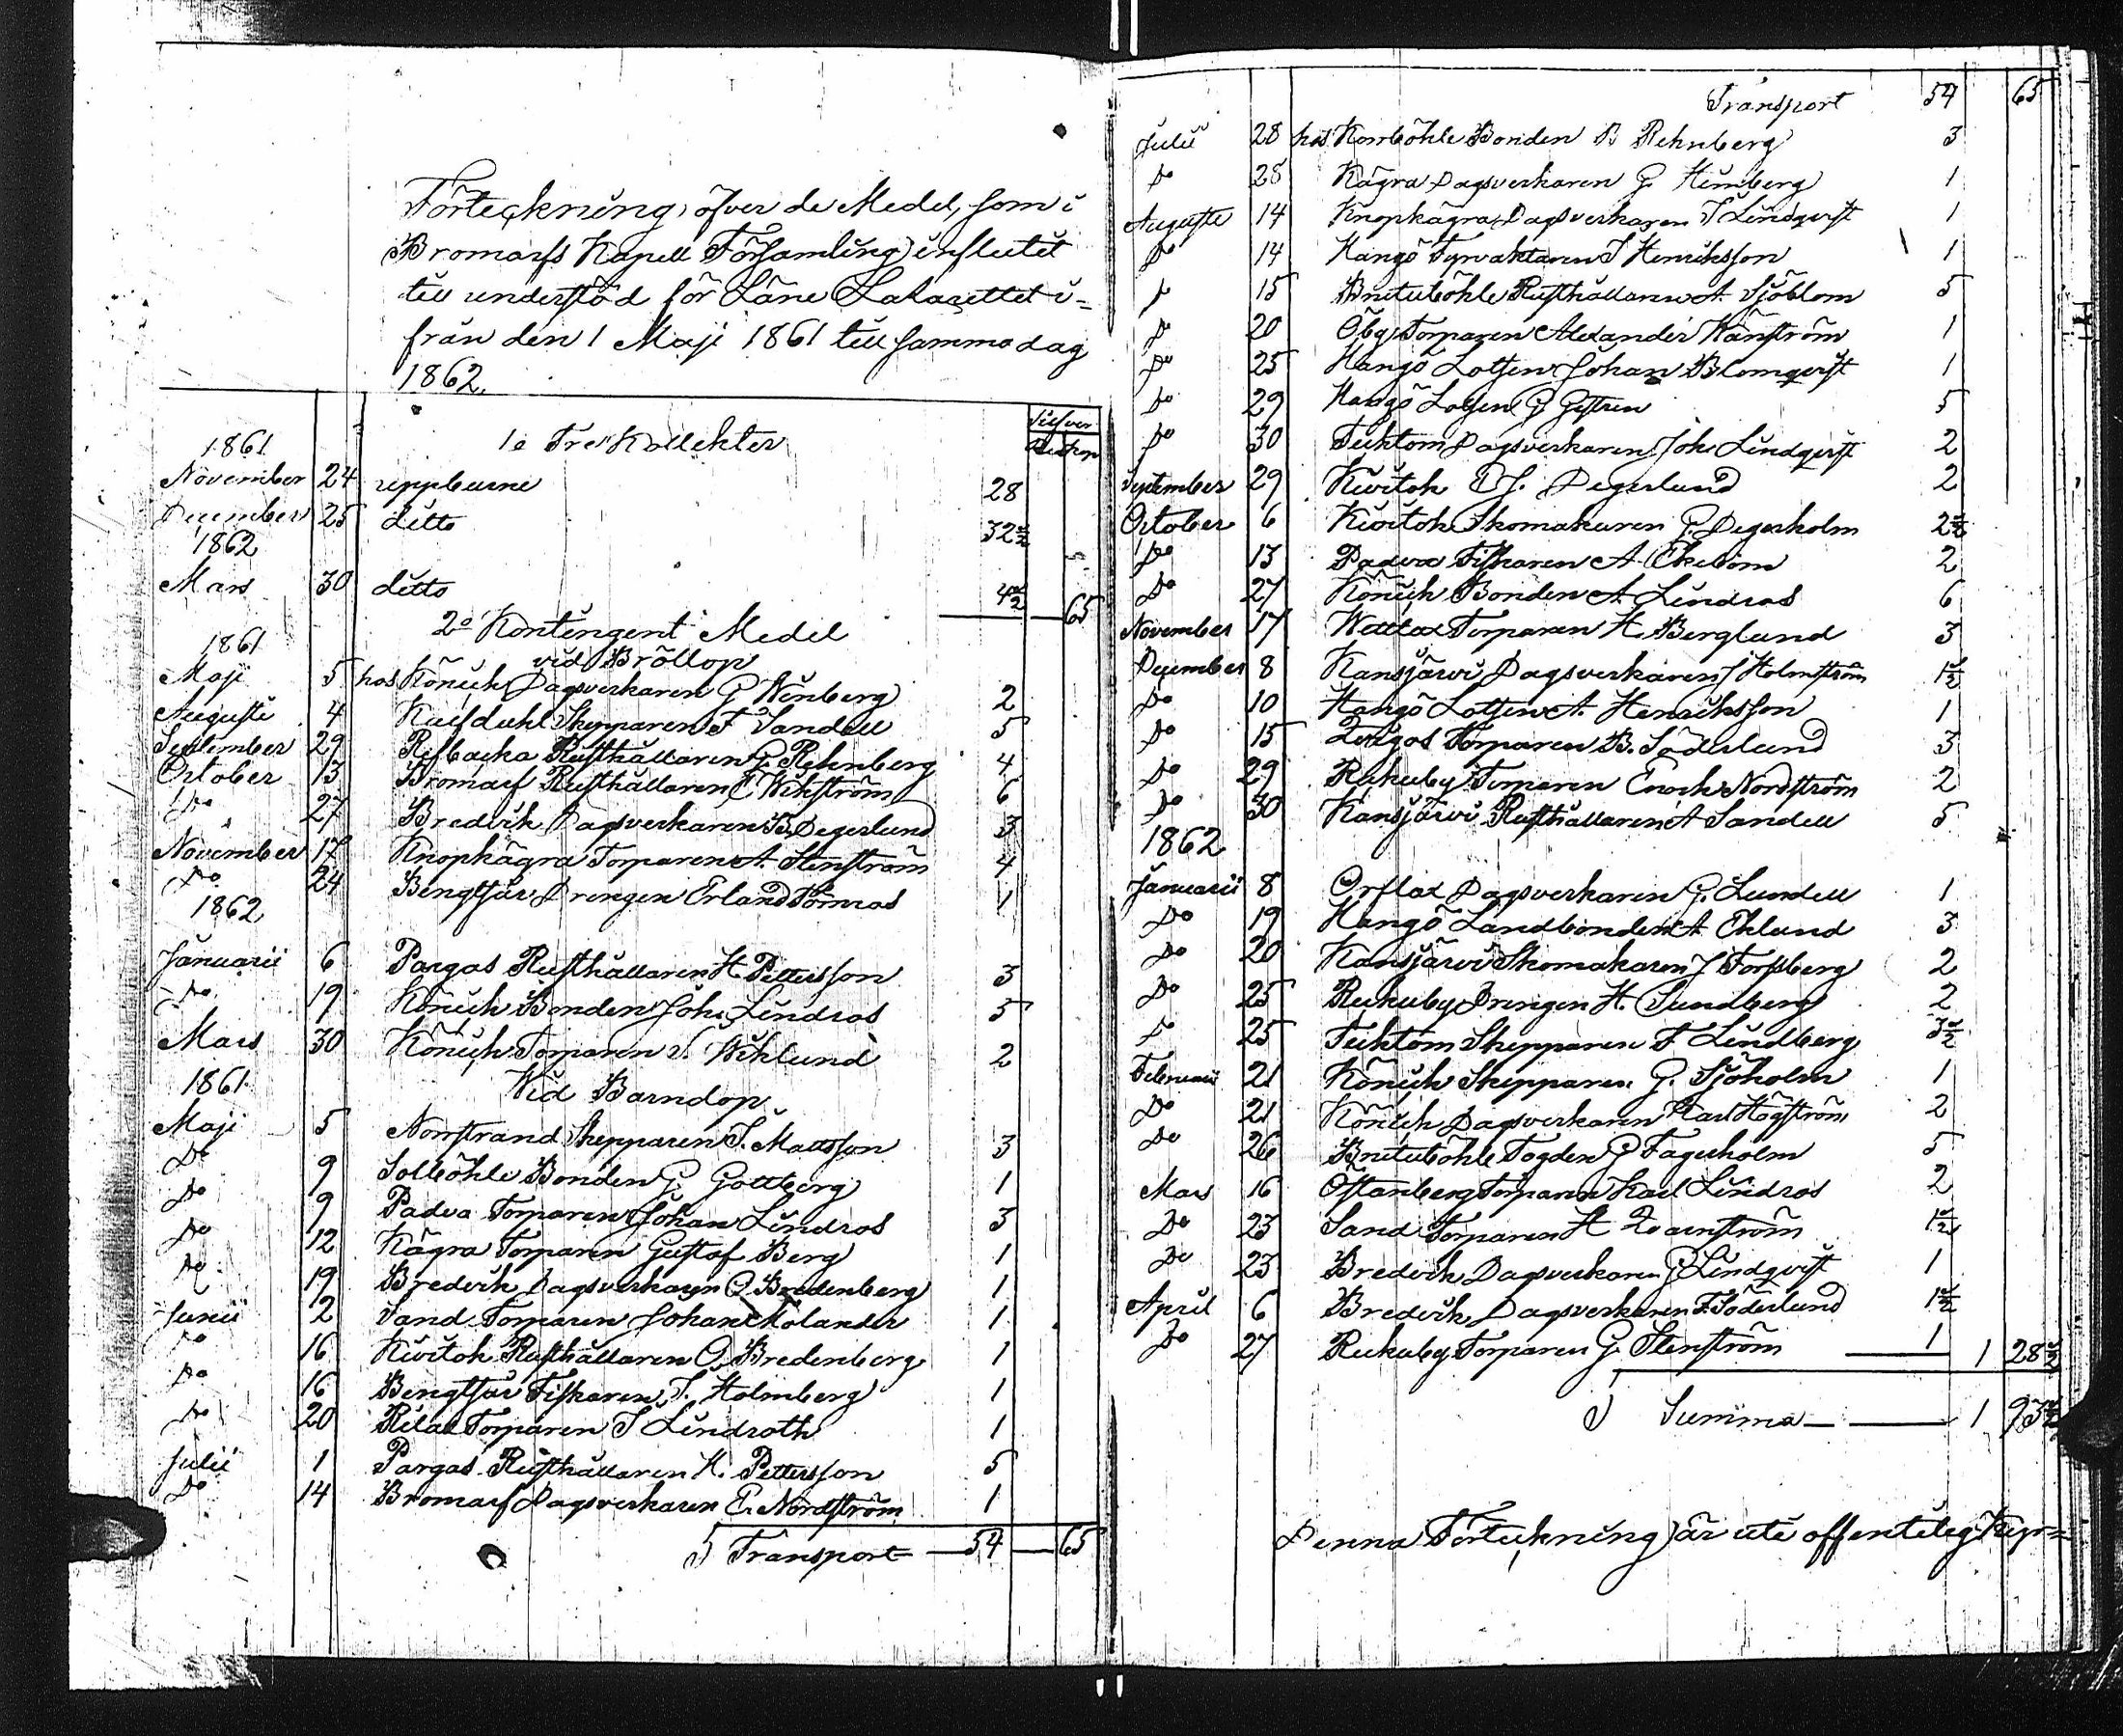 Förteckning öfver de Medel, som i
Bromarfs Kapell Församling influtit
till understöd för Läne Lazarettet i-
från den 1 Maji 1861 till samma dag
1862.
Silfver
Rub Kop
1861 1o Tre Kollekter
November 24 uppburne 28
December 25 ditto 32 1/2
1862
Mars 30 ditto 4 1/2 65
2o Kontingent Medel
1861 vid Bröllop
Maji 5 hos Könick Dagsverkaren G Winberg 2
Augusti 4 Kalfdahl Skepparen F Sandell 5
September 29 Refbacka Rusthållaren G. Rehnberg 4
October 13 Bromarf Rusthållaren E Wikström 6
Do 27 Bredvik Dagsverkaren B. Degerlund 3
November 17 Knopkägra Torparen A. Stenström 4
Do 24 Bengtsår Drengen Erland Törnroos 1
1862
Januarii 6 Pargas Rusthållaren H. Pettersson 3
Do 19 Könick Bonden Joh. Lindros 5
Mars 30 Könick Torparen S. Wiklund 2
1861 Vid Barndop
Maji 5 Norrstrand Skepparen S. Mattsson 3
Do 9 Solböhle Bonden G. Gottberg 1
Do 9 Padva Torparen Johan Lindros 3
Do 12 Kägra Torparen Gustaf Berg 1
Do 19 Bredvik Dagsverkaren O Bredenberg 1
Junii 2 Sand Torparen Johan Molander 1
Do 16 Kivitok Rusthållaren O. Bredenberg 1
Do 16 Bengtsår Fiskaren S. Holmberg 1
Do 20 Rilax Torparen S Lindroth 1
Julii 1 Pargas Rusthållaren H. Pettersson 5
Do 14 Bromarf Dagsverkaren E. Nordström 1
Transport 54 65
Transport 54 65
Julii 28 hos Kornböhle Bonden B Rehnberg 3
Do 28 Kägra Dagsverkaren G. Himberg 1
Augusti 14 Knopkägra Dagsverkaren S Lindqvist 1
Do 14 Hangö Fyrvaktaren S Henriksson 1
Do 15 Britsböhle Rusthållaren A Sjöblom 5
Do 20 Öby Torparen Alexander 1
Do 25 Hangö Lotsen Johan Blomqvist 1
Do 29 Hangö Lotsen G 5
Do 30 Täktom Dagsverkaren Joh. Lindqvist 2
September 29 Kivitok E J. Degerlund 2
October 6 Kivitok Skomakaren G. Degerholm 2 1/2
Do 13 Padva Fiskaren A Ekebom 2
Do 27 Könick Bonden A Lindros 6
November 17 Wättlax Torparen H. Berglund 3
December 8 Kansjärvi Dagsverkaren J Holmström 1 1/2
Do 10 Hangö Lotsen A. Henriksson 1
Do 15 Torparen B. Söderlund 3
Do 29 Rukuby Torparen Enoch Nordström 2
Do 30 Kansjärvi Rusthållaren A Sandell 5
1862
Januarii 8 Orslax Dagsverkaren G. Lundell 1
Do 19 Hangö Landbonden A Eklund 3
Do 20 Kansjärvi Skomakaren J Forssberg 2
Do 25 Rukuby Drengen H. Sundberg 2
Do 25 Täktom Skepparen F Lindberg 3 1/2
Februarii 21 Könick Skepparen G. Sjöholm 1
Do 21 Könick Dagsverkaren Karl Högström 2
Do 26 Britsböhle Fogden G Fagerholm 5
Mars 16 Östanberg Torparen Karl Lindros 2
Do 23 Sand Torparen H Qvarnström 1 1/2
Do 23 Bredvik Dagsverkaren G Lindqvist 1
April 6 Bredvik Dagsverkaren F. Söderlund 1 1/2
Do 27 Rukuby Torparen G. Stenström 1 1 28 1/2
Summa 1 93 1/2
Denna Förteckning är uti offentelig Kyr=